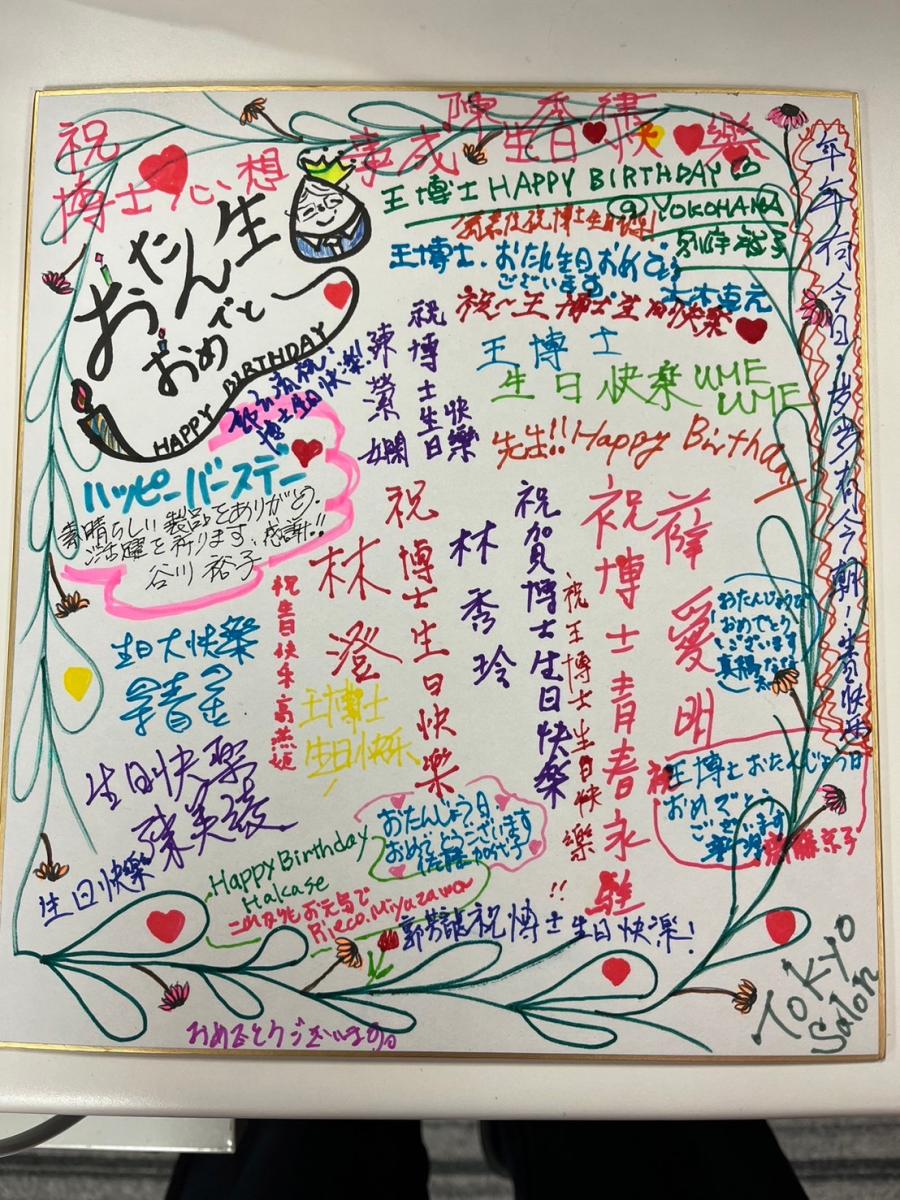 陳秀
祝 生日快樂
博士心想事成
王博士HAPPY BIRTHDAY
@YOKOHAMA
裕子
おたん生
おめでと
HAPPY BIRTHDAY
祝博士生日快樂!
王博士.おたん生日おめでとう
ございます
祝~王博士生日快樂
王博士
生日快楽 UME
UME
先生!! Happy Birthday
祝博士生日快樂
陳
博士生日快樂!!
ハッピーバースデー
素晴らしい製品をありがとう.
ご活躍を祈ります、感謝!!
谷川 裕子
年年有今日,歲歲有今朝!生日快乐
薛愛明
祝博士青春永駐
祝王博士生日快樂!!
祝賀博士生日快樂
林秀玲
祝博士生日快樂
林澄
祝生日快乐高燕
王博士
生日快乐
生日大快樂
生日快樂
美
生日快樂
おたんじょうび
おめでとう
ございます
王博士おたんじょう日
おめでとう
ございます
京子
おたんじょう日
おめでとうございます
佐藤加代子
Happy Birthday
Hakase
これからもお元気で
Rieco.Miyazawa
祝博士生日快樂!
おめでとうございます
TOKYO
Salon